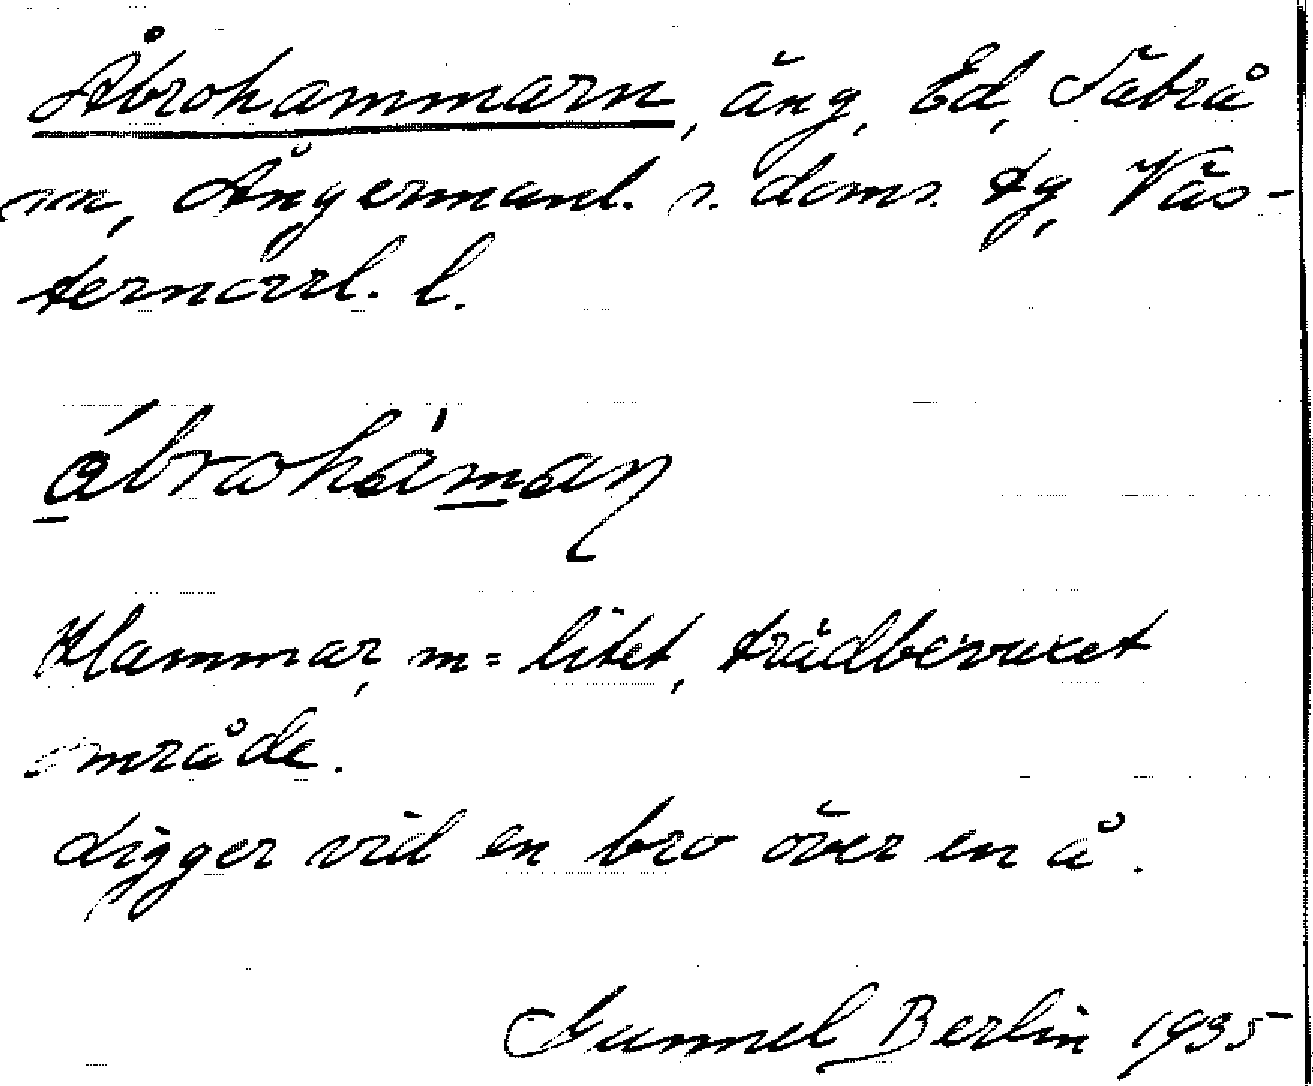 Åbrohammarn, äng, Ed, Säbrå
sn, Ångermanl. s. doms. tg, Väs-
ternorrl. l.
ábrohåmaɳ
Hammar, m = litet, trädbevuxet
område.
Ligger vid en bro över en å.
Gunnel Berlin 1935